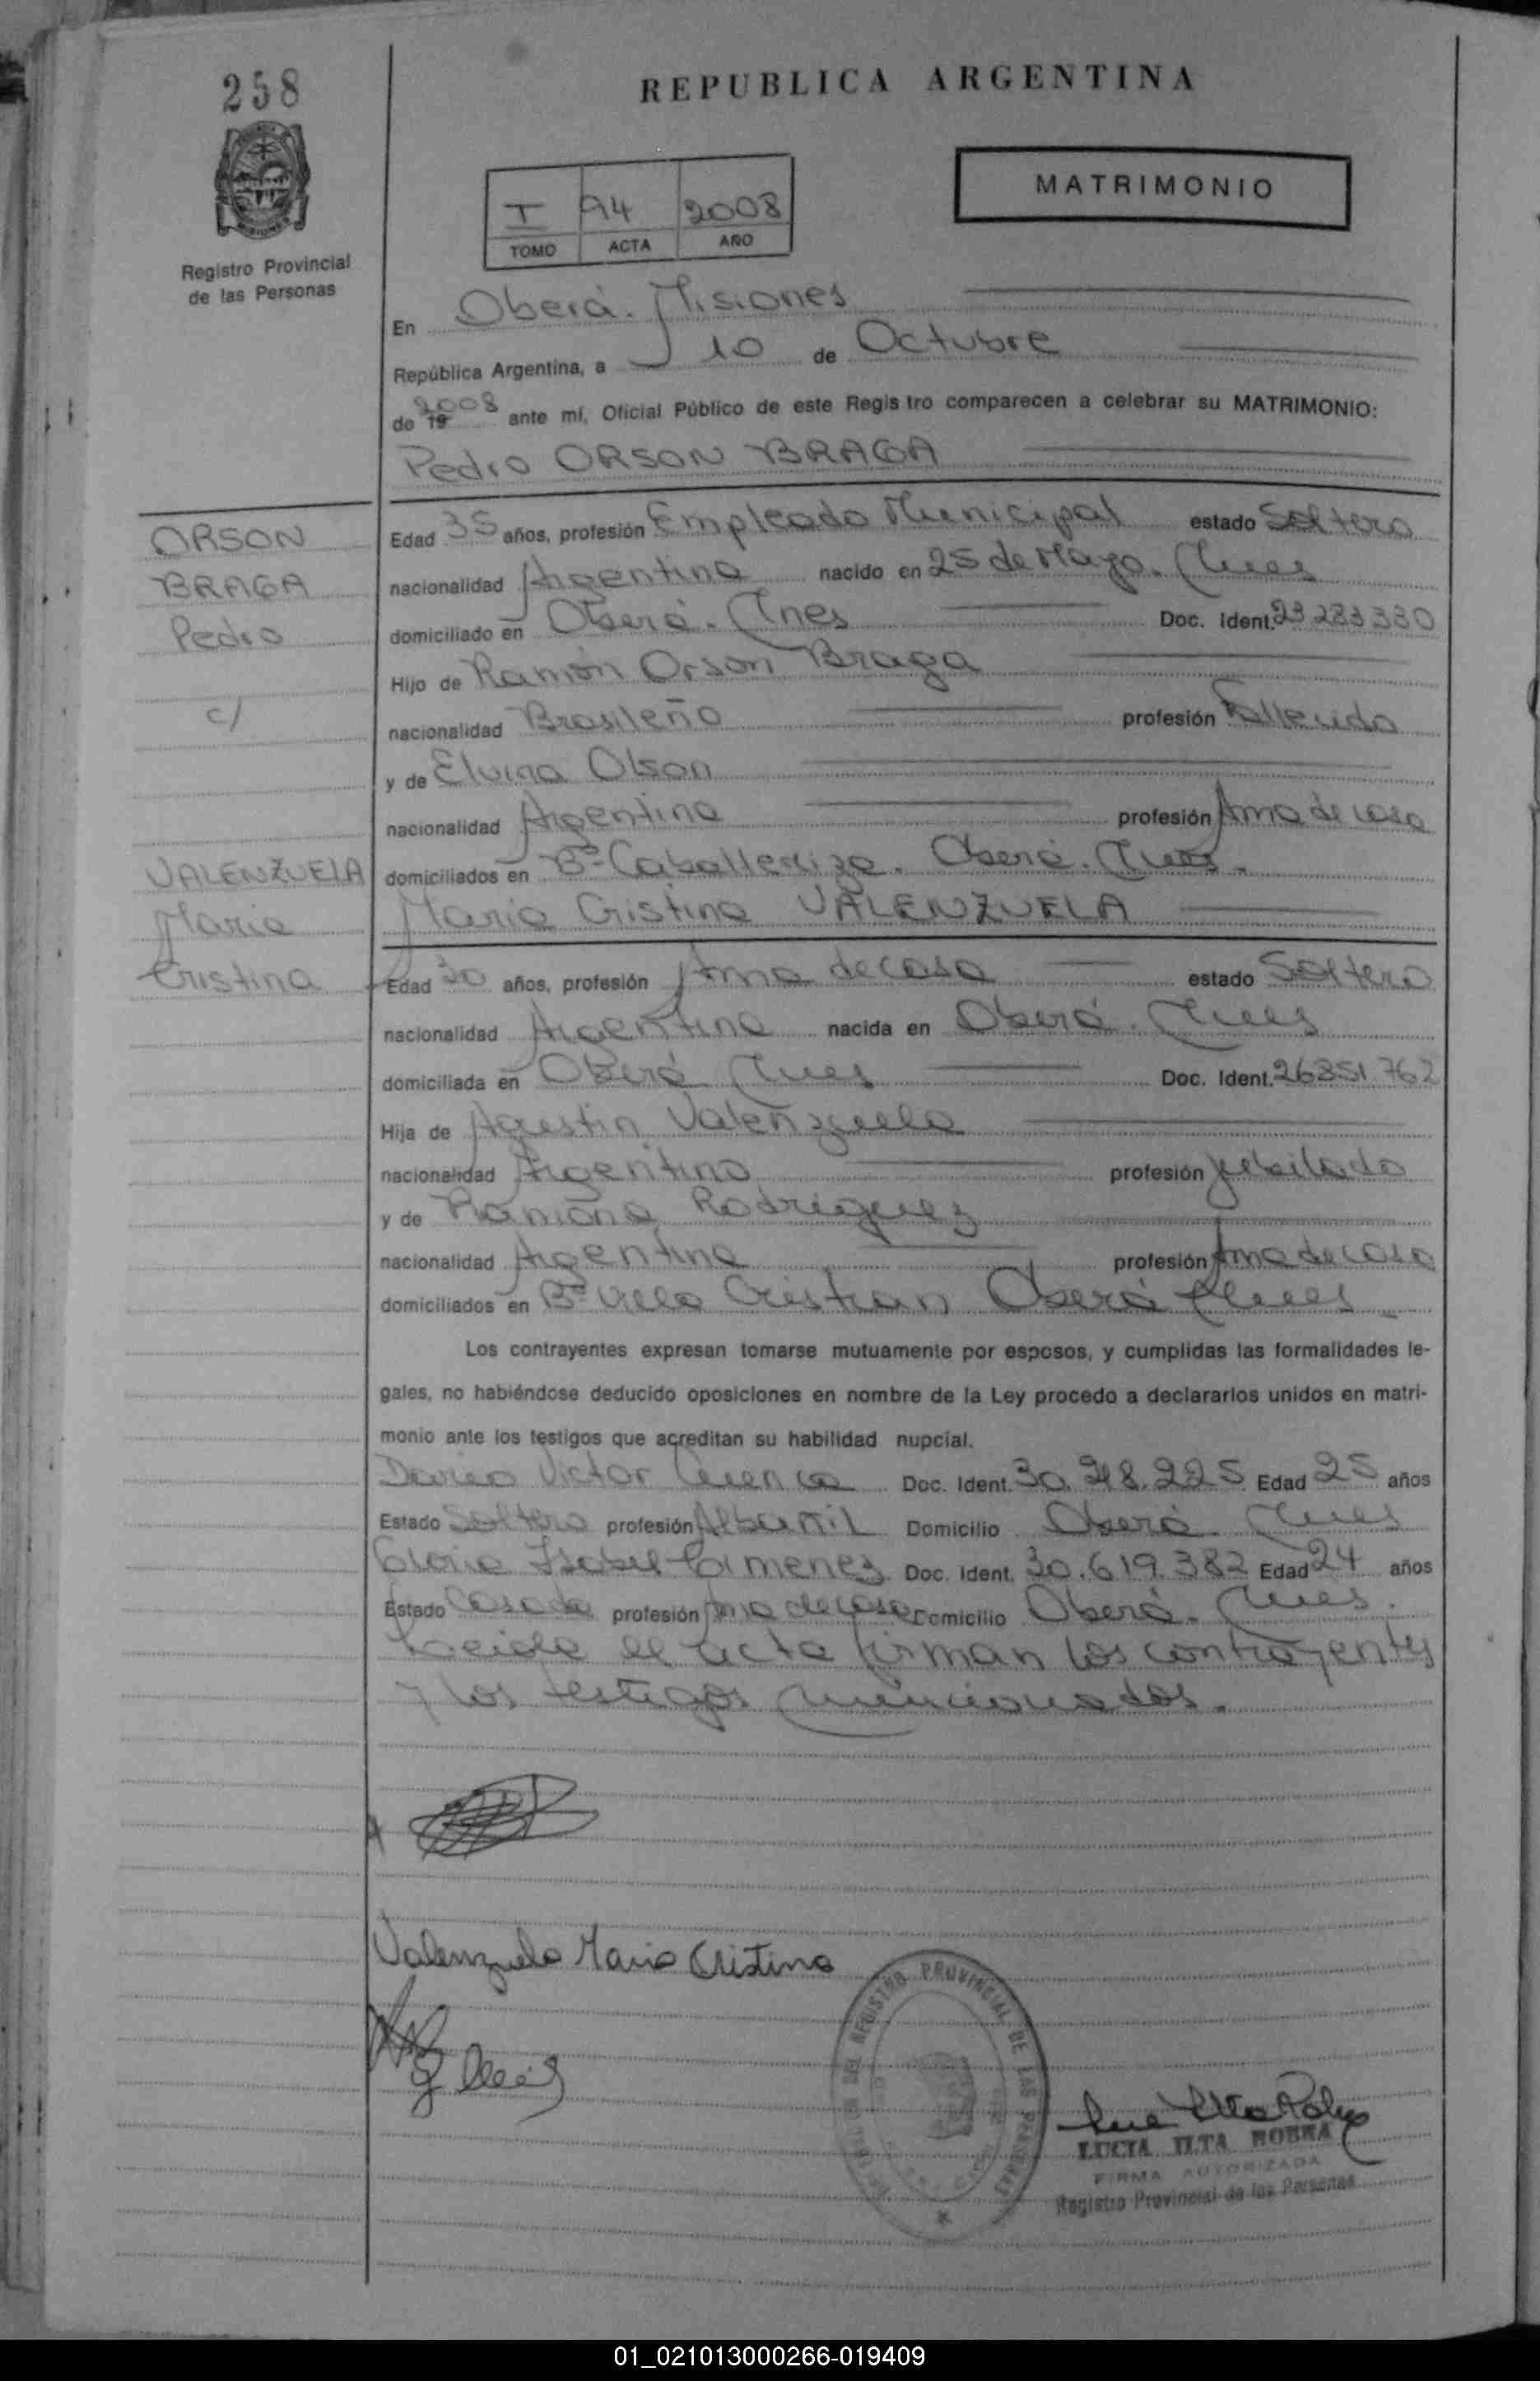 258
REPUBLICA ARGENTINA
MATRIMONIO
I 94 2008
TOMO ACTA AÑO
MISIONES
Registro Provincial
de las Personas
En Oberá. Misiones
República Argentina, a 10 de Octubre
de 19 2008 ante mí, Oficial Público de este Regis tro comparecen a celebrar su MATRIMONIO:
Pedro ORSON BRAGA
ORSON
BRAGA
Pedro
c/
VALENZUELA
Maria
Cristina
Edad 35 años, profesión Empleado Municipal estado Soltero
nacionalidad Argentina nacido en 25 de Mayo. Mnes
domiciliado en Oberá. Mnes Doc. Ident. 23 283 330
Hijo de Ramón Orson Braga
nacionalidad Brasileño profesión Fallecido
y de Elvira Olson
nacionalidad Argentina profesión Ama de casa
domiciliados en Bº Caballeriza. Oberá. Mnes.
Maria Cristina VALENZUELA
Edad 30 años, profesión Ama de casa estado Soltera
nacionalidad Argentina nacida en Oberá. Mnes
domiciliada en Oberá Mnes Doc. Ident. 26851.762
Hija de Agustin Valenzuela
nacionalidad Argentino profesión Jubilado
y de Ramona Rodriguez
nacionalidad Argentina profesión Ama de casa
domiciliados en Bº Villa Cristian Oberá Mnes
Los contrayentes expresan tomarse mutuamente por esposos, y cumplidas las formalidades le-
gales, no habiéndose deducido oposiciones en nombre de la Ley procedo a declararlos unidos en matri-
monio ante los testigos que acreditan su habilidad nupcial.
Victor Doc. Ident. 30. 225 Edad 25 años
Estado Soltero profesión Albañil Domicilio Oberá. Mnes
Gloria Isabel Gimenez Doc. Ident. 30.619.382 Edad 24 años
Estado Casada profesión Ama de casa Domicilio Oberá. Mnes.
el acta firman los contrayentes
y los testigos mencionados.
Valenzuela Maria Cristina
REGISTRO PROVINCIAL DE LAS PERSONAS
LUCIA
FIRMA AUTORIZADA
Registro Provincial de las Personas
01_021013000266-019409